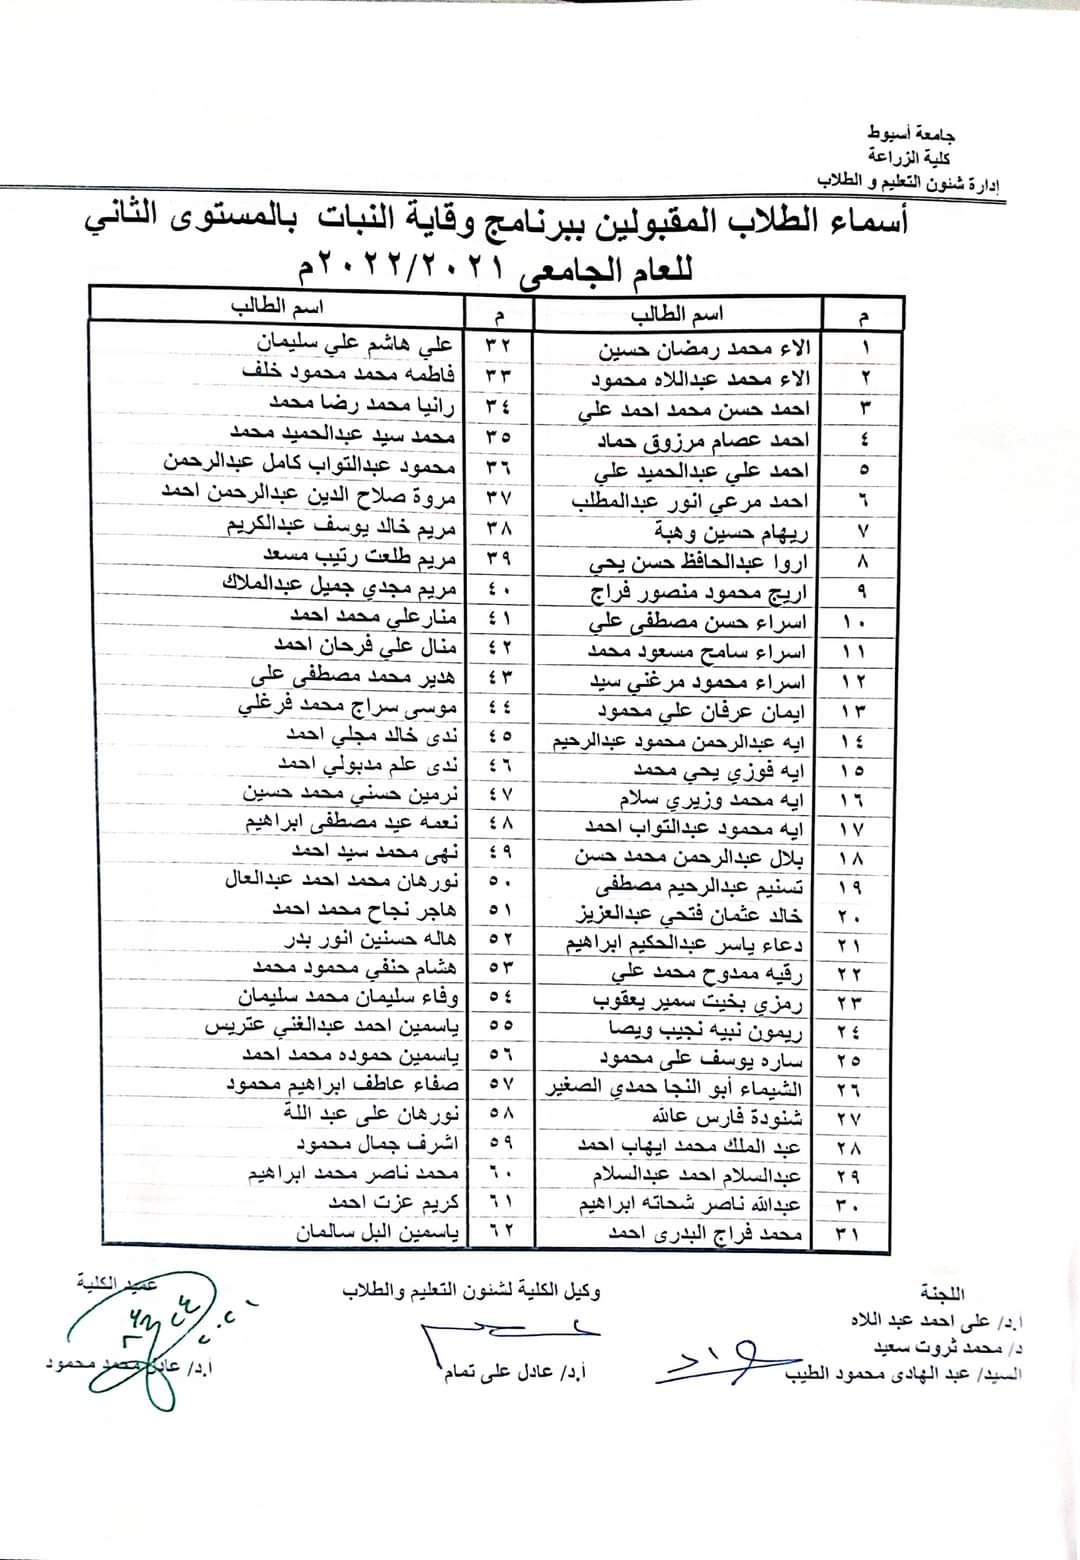 جامعة أسيوط
كلية الزراعة
إدارة شئون التعليم و الطلاب
أسماء الطلاب المقبولين ببرنامج وقاية النبات بالمستوى الثاني
للعام الجامعى ٢٠٢٢/٢٠٢١م
م اسم الطالب م اسم الطالب
١ الاء محمد رمضان حسين ٣٢ علي هاشم علي سليمان
٢ الاء محمد عبداللاه محمود ٣٣ فاطمه محمد محمود خلف
٣ احمد حسن محمد احمد علي ٣٤ رانيا محمد رضا محمد
٤ احمد عصام مرزوق حماد ٣٥ محمد سيد عبدالحميد محمد
٥ احمد علي عبدالحميد علي ٣٦ محمود عبدالتواب كامل عبدالرحمن
٦ احمد مرعي انور عبدالمطلب ٣٧ مروة صلاح الدين عبدالرحمن احمد
٧ ريهام حسين وهبة ٣٨ مريم خالد يوسف عبدالكريم
٨ اروا عبدالحافظ حسن يحي ٣٩ مريم طلعت رتيب مسعد
٩ اريج محمود منصور فراج ٤٠ مريم مجدي جميل عبدالملاك
١٠ اسراء حسن مصطفى علي ٤١ منارعلي محمد احمد
١١ اسراء سامح مسعود محمد ٤٢ منال علي فرحان احمد
١٢ اسراء محمود مرغني سيد ٤٣ هدير محمد مصطفى على
١٣ ايمان عرفان علي محمود ٤٤ موسى سراج محمد فرغلي
١٤ ايه عبدالرحمن محمود عبدالرحيم ٤٥ ندى خالد مجلي احمد
١٥ ايه فوزي يحي محمد ٤٦ ندى علم مدبولي احمد
١٦ ايه محمد وزيري سلام ٤٧ نرمين حسني محمد حسين
١٧ ايه محمود عبدالتواب احمد ٤٨ نعمه عيد مصطفى ابراهيم
١٨ بلال عبدالرحمن محمد حسن ٤٩ نهى محمد سيد احمد
١٩ تسنيم عبدالرحيم مصطفى ٥٠ نورهان محمد احمد عبدالعال
٢٠ خالد عثمان فتحي عبدالعزيز ٥١ هاجر نجاح محمد احمد
٢١ دعاء ياسر عبدالحكيم ابراهيم ٥٢ هاله حسنين انور بدر
٢٢ رقيه ممدوح محمد علي ٥٣ هشام حنفي محمود محمد
٢٣ رمزي بخيت سمير يعقوب ٥٤ وفاء سليمان محمد سليمان
٢٤ ريمون نبيه نجيب ويصا ٥٥ ياسمين احمد عبدالغني عتريس
٢٥ ساره يوسف على محمود ٥٦ ياسمين حموده محمد احمد
٢٦ الشيماء أبو النجا حمدي الصغير ٥٧ صفاء عاطف ابراهيم محمود
٢٧ شنودة فارس عالله ٥٨ نورهان على عبد اللة
٢٨ عبد الملك محمد ايهاب احمد ٥٩ اشرف جمال محمود
٢٩ عبدالسلام احمد عبدالسلام ٦٠ محمد ناصر محمد ابراهيم
٣٠ عبدالله ناصر شحاته ابراهيم ٦١ كريم عزت احمد
٣١ محمد فراج البدرى احمد ٦٢ ياسمين البل سالمان
اللجنة وكيل الكلية لشئون التعليم والطلاب عميد الكلية
أ.د/ على احمد عبد اللاه
د/ محمد ثروت سعيد
السيد/ عبد الهادى محمود الطيب أ.د/ عادل على تمام أ.د/ عادل محمد محمود